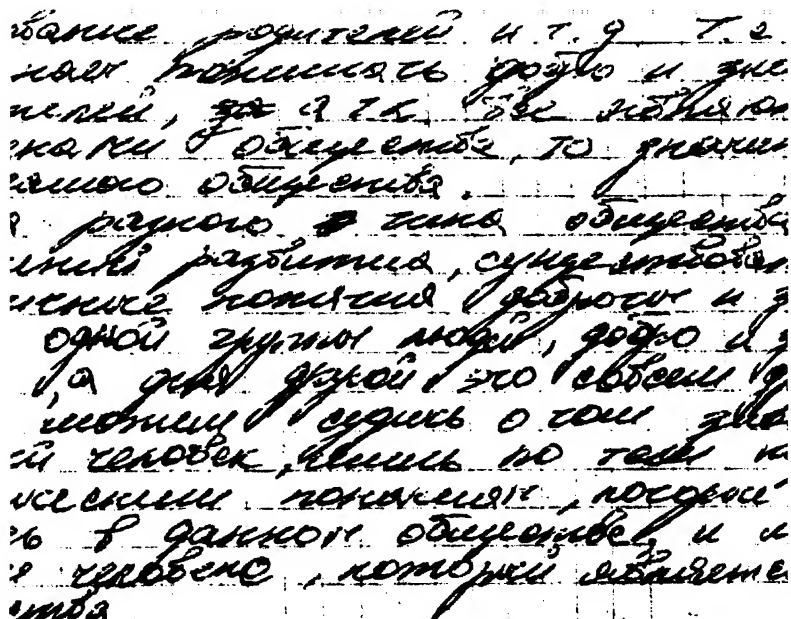 вание родителей и т.д т.е
нает понимать добро и зло
телей, а т.к. все явля
общества, то значит
общества.
разного типа общества
развития, существова
понятия доброты и з
одной группы людей, добро и з
, а для другой это совсем д
можем судить о том зло
й человек, лишь по тем
ческим понятиям, который
ь в данном обществе, и
человека, который являетс
ства